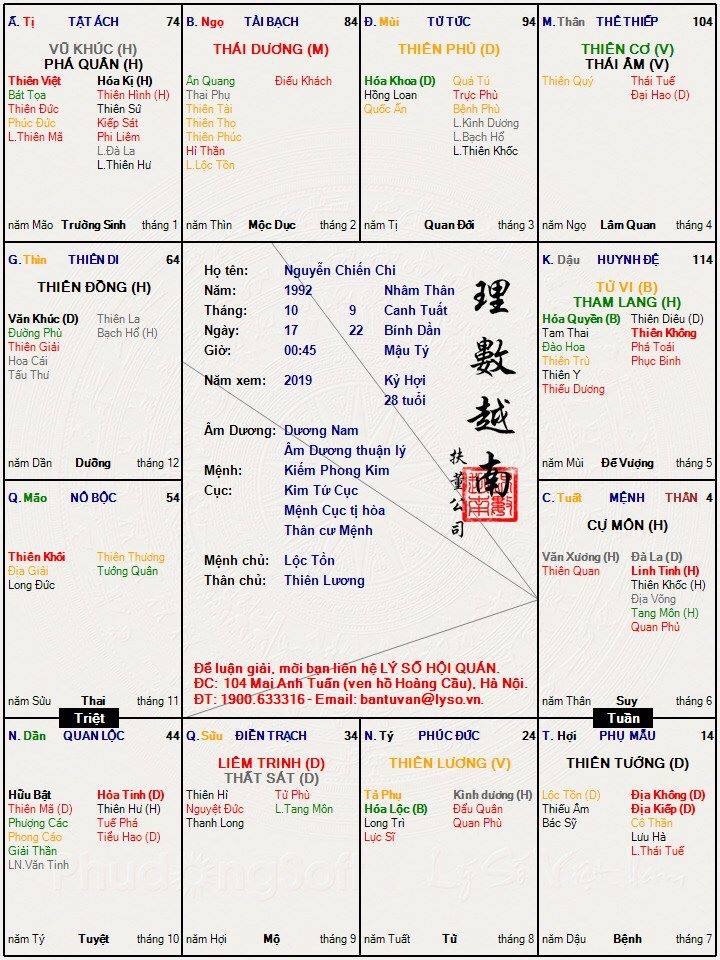 Ấ. Tị TẬT ÁCH 74
VŨ KHÚC (H)
PHÁ QUÂN (H)
Thiên Việt Hóa Kị (H)
Bát Tọa Thiên Hình (H)
Thiên Đức Thiên Sứ
Phúc Đức Kiếp Sát
L.Thiên Mã Phi Liêm
L.Đà La
L.Thiên Hư
năm Mão Trường Sinh tháng 1
B. Ngọ TÀI BẠCH 84
THÁI DƯƠNG (M)
Ân Quang Điếu Khách
Thai Phụ
Thiên Tài
Thiên Thọ
Thiên Phúc
Hỉ Thần
L.Lộc Tồn
năm Thìn Mộc Dục tháng 2
Đ. Mùi TỬ TỨC 94
THIÊN PHỦ (D)
Hóa Khoa (D) Quả Tú
Hồng Loan Trực Phù
Quốc Ấn Bệnh Phù
L.Kình Dương
L.Bạch Hổ
L.Thiên Khốc
năm Tị Quan Đới tháng 3
M. Thân THÊ THIẾP 104
THIÊN CƠ (V)
THÁI ÂM (V)
Thiên Quý Thái Tuế
Đại Hao (D)
năm Ngọ Lâm Quan tháng 4
G. Thìn THIÊN DI 64
THIÊN ĐỒNG (H)
Văn Khúc (D) Thiên La
Đường Phù Bạch Hổ (H)
Thiên Giải
Hoa Cái
Tấu Thư
năm Dần Dưỡng tháng 12
Họ tên: Nguyễn Chiến Chi
Năm: 1992 Nhâm Thân
Tháng: 10 9 Canh Tuất
Ngày: 17 22 Bính Dần
Giờ: 00:45 Mậu Tý
Năm xem: 2019 Kỷ Hợi
28 tuổi
Âm Dương: Dương Nam
Âm Dương thuận lý
Mệnh: Kiếm Phong Kim
Cục: Kim Tứ Cục
Mệnh Cục tị hòa
Thân cư Mệnh
Mệnh chủ: Lộc Tồn
Thân chủ: Thiên Lương
理數越南
扶董公司
Để luận giải, mời bạn liên hệ LÝ SỐ HỘI QUÁN.
ĐC: 104 Mai Anh Tuấn (ven hồ Hoàng Cầu), Hà Nội.
ĐT: 1900.633316 - Email: bantuvan@lyso.vn.
K. Dậu HUYNH ĐỆ 114
TỬ VI (B)
THAM LANG (H)
Hóa Quyền (B) Thiên Diêu (D)
Tam Thai Thiên Không
Đào Hoa Phá Toái
Thiên Trù Phục Binh
Thiên Y
Thiếu Dương
năm Mùi Đế Vượng tháng 5
Q. Mão NÔ BỘC 54
Thiên Khôi Thiên Thương
Địa Giải Tướng Quân
Long Đức
năm Sửu Thai tháng 11
Triệt
C. Tuất MỆNH THÂN 4
CỰ MÔN (H)
Văn Xương (H) Đà La (D)
Thiên Quan Linh Tinh (H)
Thiên Khốc (H)
Địa Võng
Tang Môn (H)
Quan Phủ
năm Thân Suy tháng 6
Tuần
N. Dần QUAN LỘC 44
Hữu Bật Hỏa Tinh (D)
Thiên Mã (D) Thiên Hư (H)
Phượng Các Tuế Phá
Phong Cáo Tiểu Hao (D)
Giải Thần
LN.Văn Tinh
năm Tý Tuyệt tháng 10
Q. Sửu ĐIỀN TRẠCH 34
LIÊM TRINH (D)
THẤT SÁT (D)
Thiên Hỉ Tử Phù
Nguyệt Đức L.Tang Môn
Thanh Long
năm Hợi Mộ tháng 9
N. Tý PHÚC ĐỨC 24
THIÊN LƯƠNG (V)
Tả Phụ Kình dương (H)
Hóa Lộc (B) Đẩu Quân
Long Trì Quan Phù
Lực Sĩ
năm Tuất Tử tháng 8
T. Hợi PHỤ MẪU 14
THIÊN TƯỚNG (D)
Lộc Tồn (D) Địa Không (D)
Thiếu Âm Địa Kiếp (D)
Bác Sỹ Cô Thần
Lưu Hà
L.Thái Tuế
năm Dậu Bệnh tháng 7